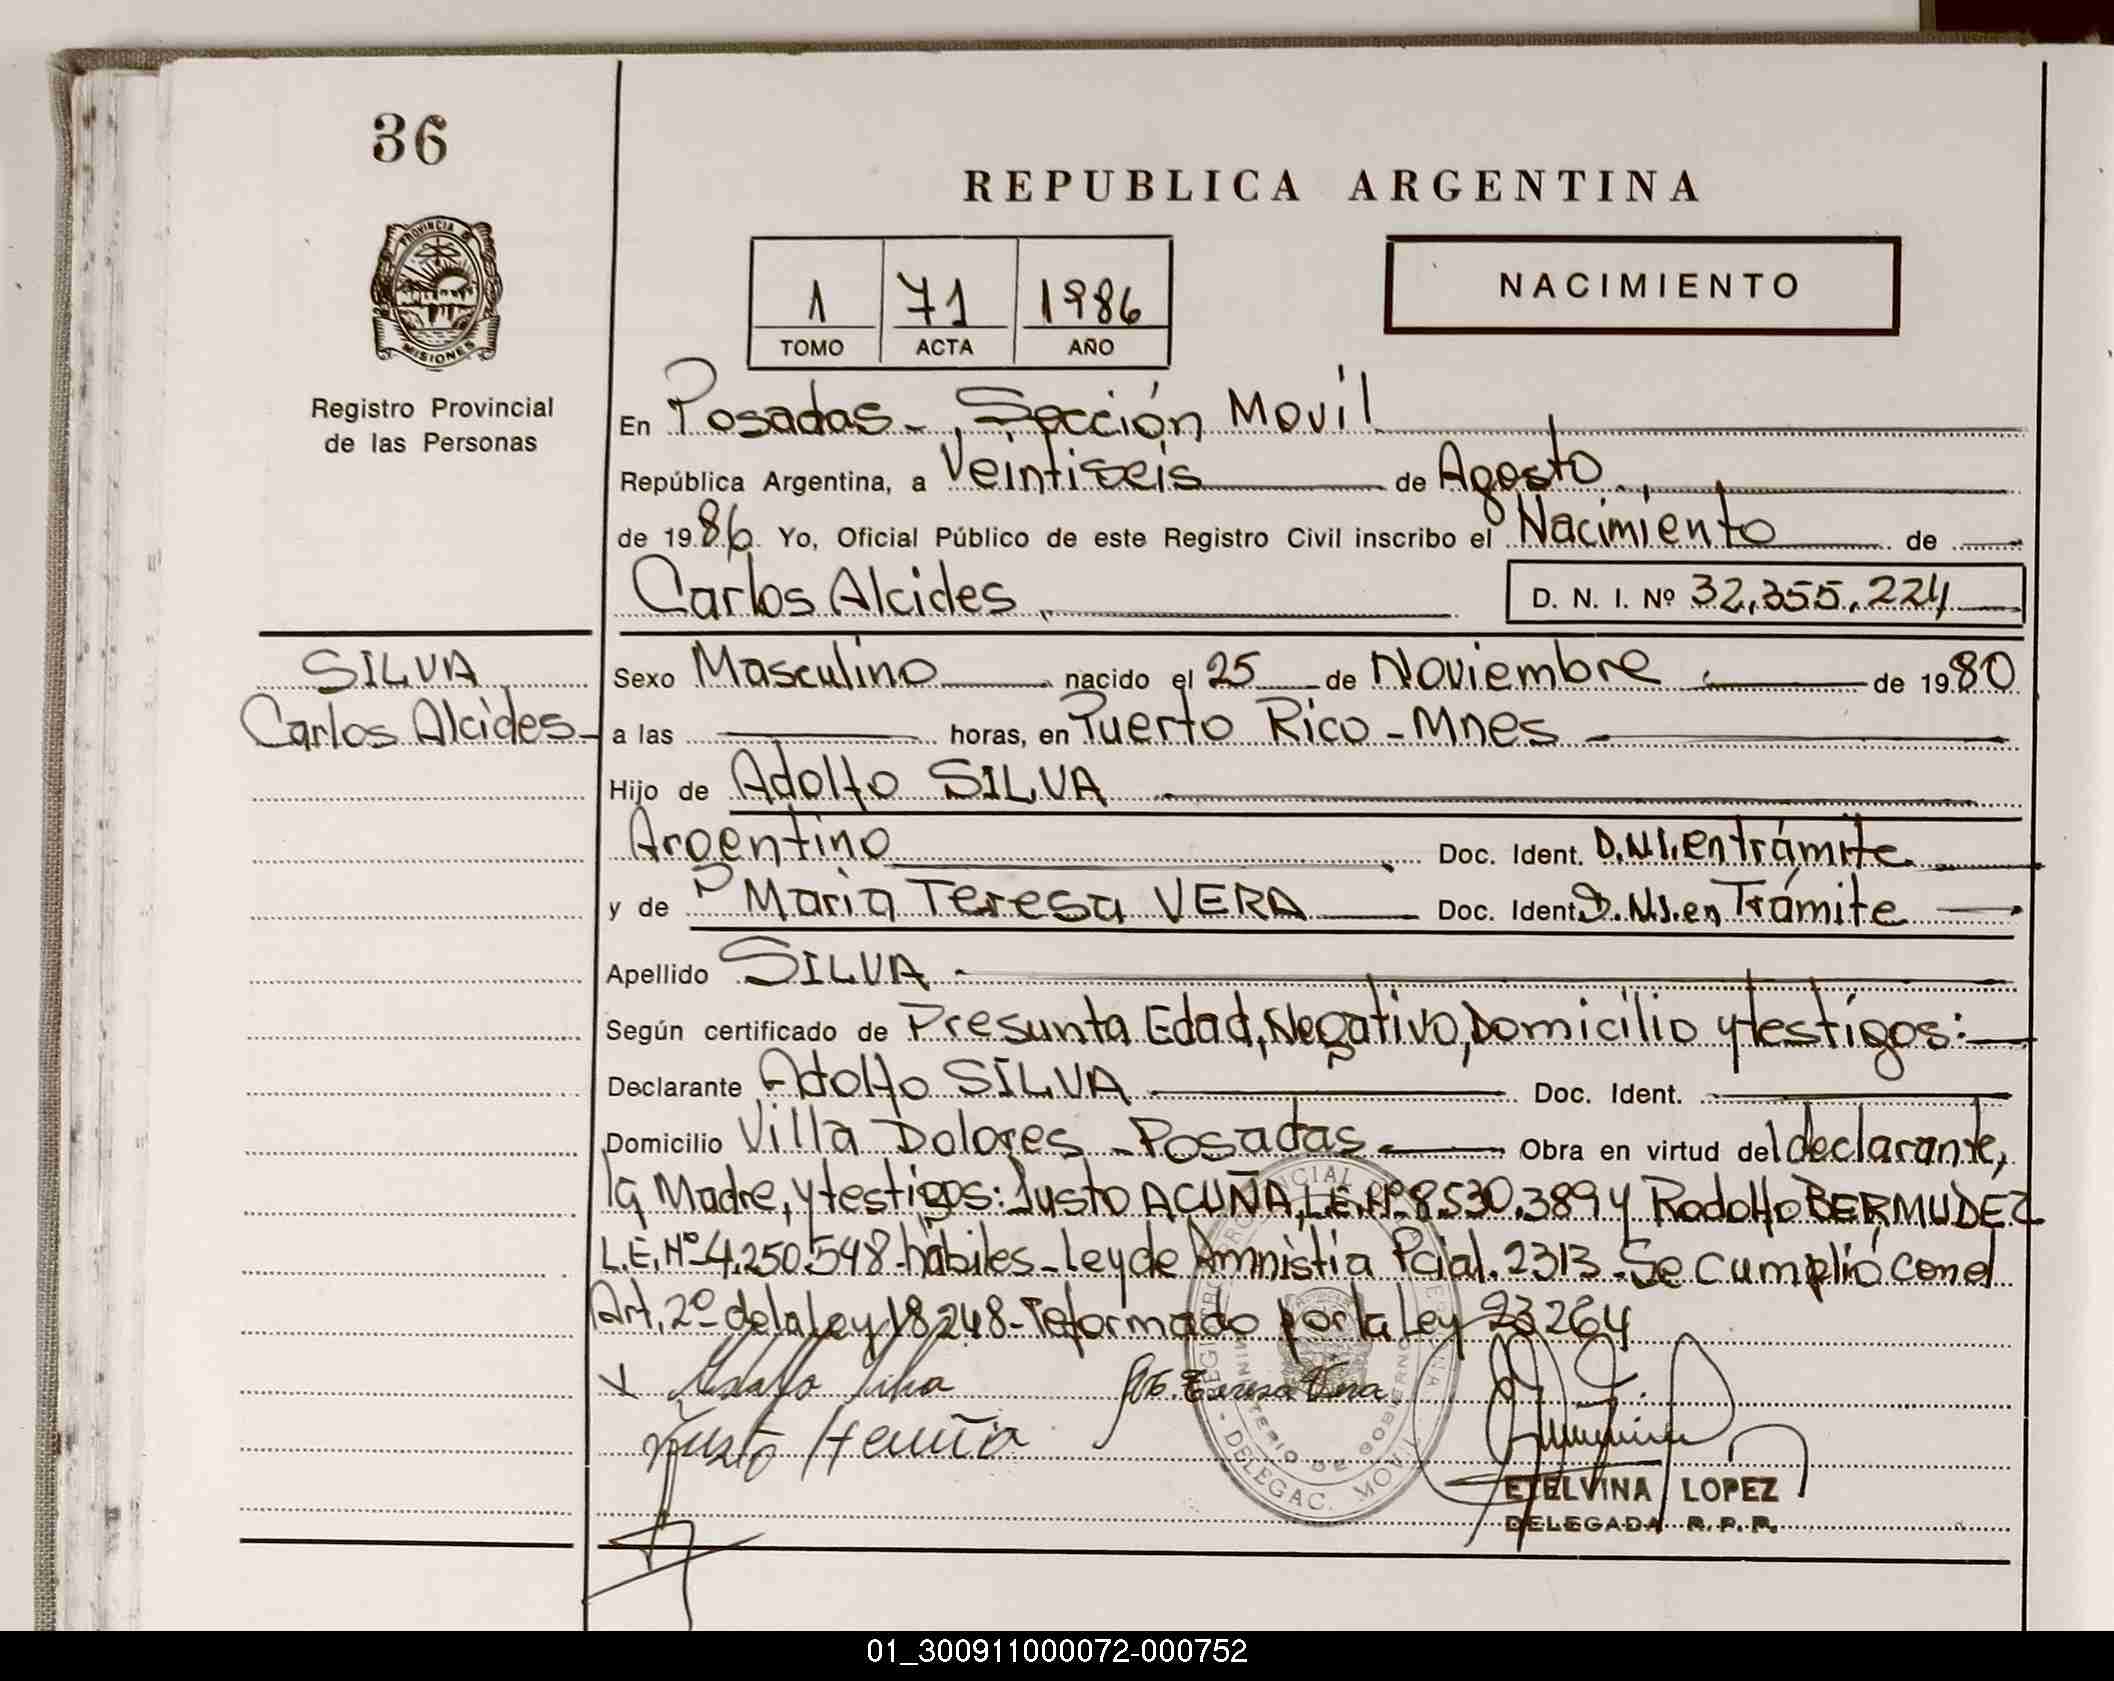 36
REPUBLICA ARGENTINA
PROVINCIA DE
MISIONES
Registro Provincial
de las Personas
1 71 1986
TOMO ACTA AÑO
NACIMIENTO
En Posadas - Sección Movil
República Argentina, a Veintiseis de Agosto
de 1986. Yo, Oficial Público de este Registro Civil inscribo el Nacimiento de
Carlos Alcides D. N. I. Nº 32.355.224
SILVA
Carlos Alcides
Sexo Masculino nacido el 25 de Noviembre de 1980
a las horas, en Puerto Rico - Mnes
Hijo de Adolfo SILVA
Argentino Doc. Ident. D.N.I. en trámite
y de Maria Teresa VERA Doc. Ident. D.N.I. en Trámite
Apellido SILVA
Según certificado de Presunta Edad, Negativo, Domicilio y testigos:
Declarante Adolfo SILVA Doc. Ident.
Domicilio Villa Dolores - Posadas Obra en virtud del declarante,
la Madre, y testigos: Justo ACUÑA, L.E. Nº 8.530.389 y Rodolfo BERMUDEZ
L.E. Nº 4.250.548 - hábiles - Ley de Amnistia Pcial. 2313 - Se cumplió con el
Art. 2º de la Ley 18248 - reformado por la Ley 23264
Adolfo Silva Teresa Vera
Justo
REGISTRO PROVINCIAL DE LAS PERSONAS
MINISTERIO DE GOBIERNO
DELEGAC. MOVIL
ETELVINA LOPEZ
DELEGADA R. P. P.
01_300911000072-000752